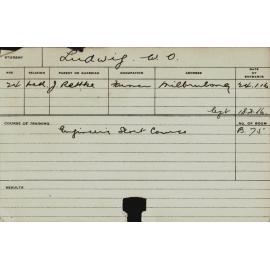 STUDENT Ludwig. W. O.
AGE RELATION PARENT OR GUARDIAN OCCUPATION ADDRESS DATE OF ENTRANCE
24 J Rettke Farmer Milbrulong 24.1.16
left 18.2.16
COURSE OF TRAINING NO. OF ROOM
Engineers Short Course B. 75
RESULTS